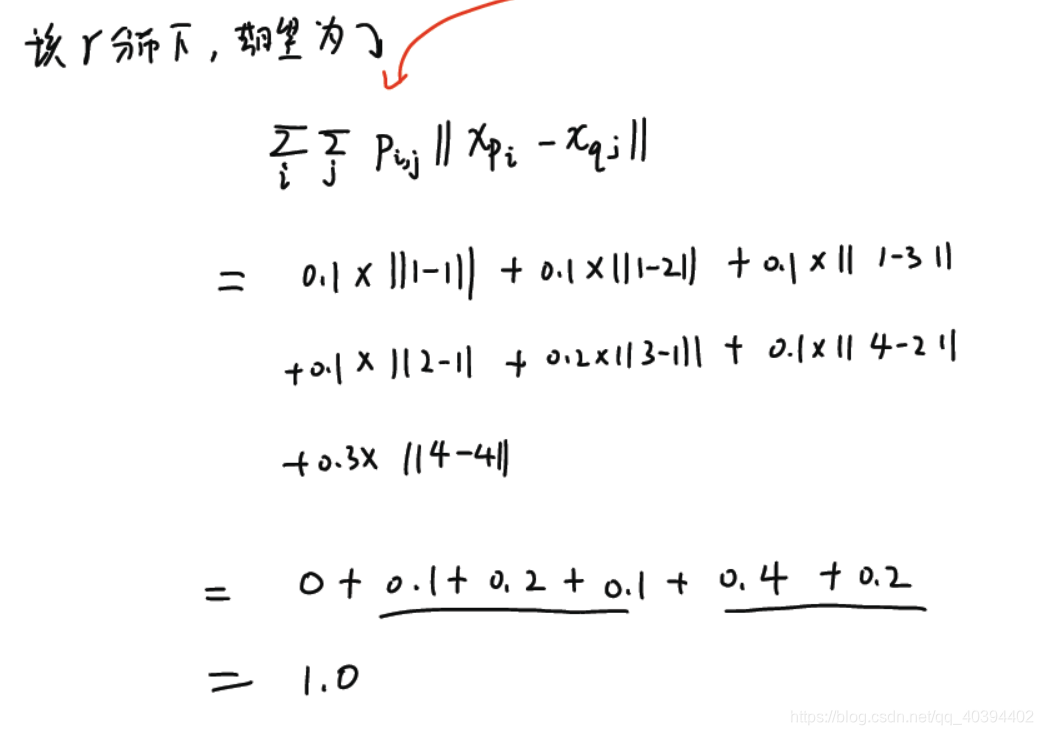 该 r 分布下，期望为
∑i ∑j Pi,j ‖ xpi - xqj ‖
= 0.1 × ||1-1|| + 0.1 × ||1-2|| + 0.1 × || 1-3 ||
+0.1 × ||2-1|| + 0.2×||3-1|| + 0.1×|| 4-2 ||
+0.3× ||4-4||
= 0 + 0.1 + 0.2 + 0.1 + 0.4 + 0.2
= 1.0
https://blog.csdn.net/qq_40394402